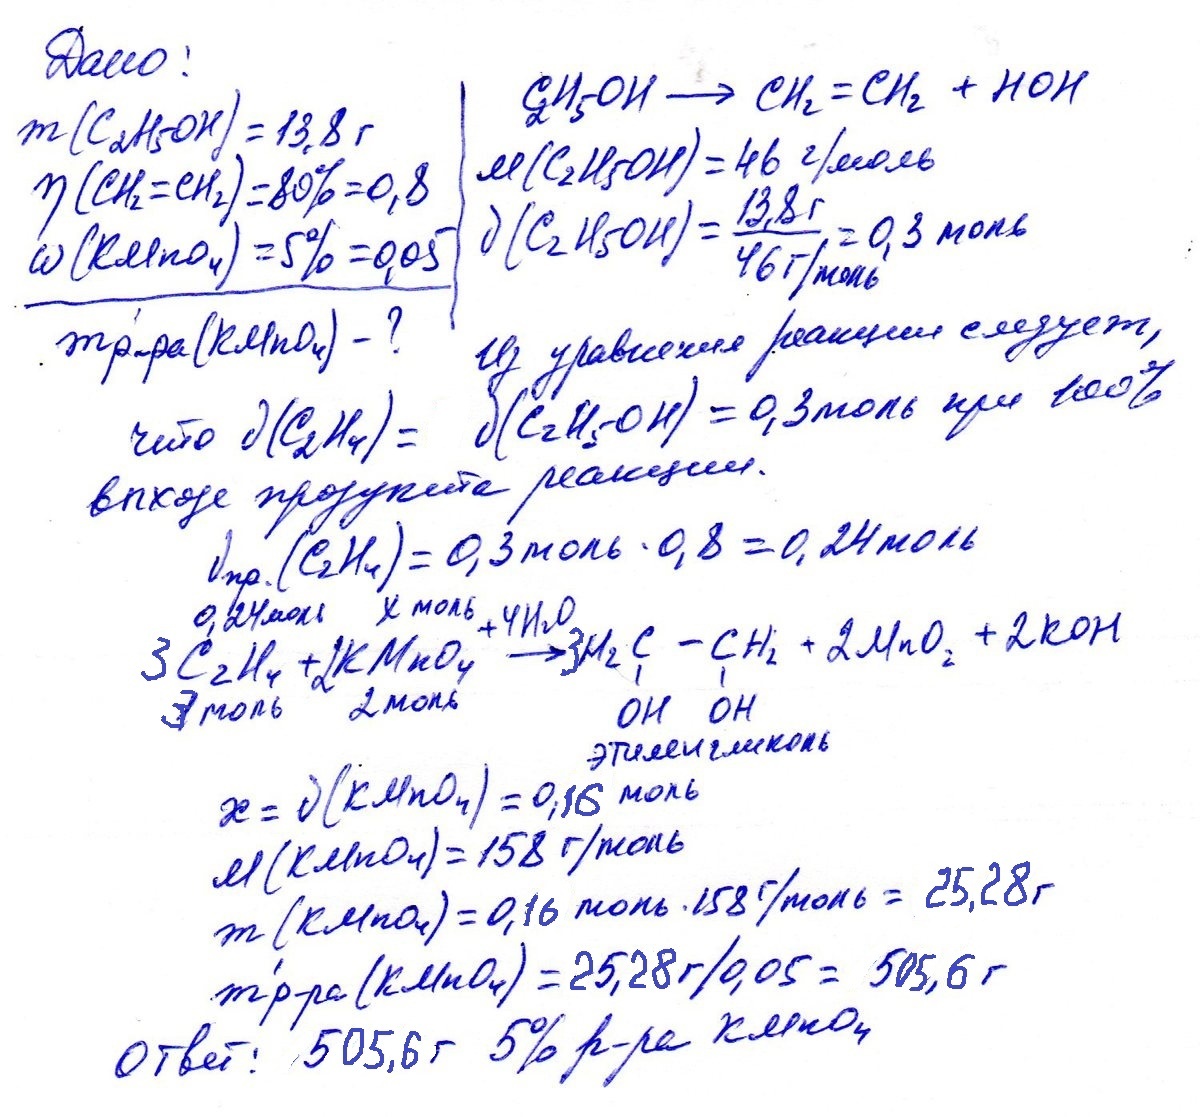 Дано:
m(C₂H₅OH) = 13,8 г
η(CH₂=CH₂) = 80% = 0,8
ω(KMnO₄) = 5% = 0,05
m р-ра (KMnO₄) – ?
C₂H₅OH → CH₂ = CH₂ + HOH
M(C₂H₅OH) = 46 г/моль
ν(C₂H₅OH) = 13,8 г / 46 г/моль = 0,3 моль
Из уравнения реакции следует,
что ν(C₂H₄) = ν(C₂H₅OH) = 0,3 моль при 100%
выходе продукта реакции.
νпр.(C₂H₄) = 0,3 моль · 0,8 = 0,24 моль
0,24 моль x моль
3C₂H₄ + 2KMnO₄ +4H₂O → 3H₂C – CH₂ + 2MnO₂ + 2KOH
3 моль 2 моль OH OH
этиленгликоль
x = ν(KMnO₄) = 0,16 моль
M(KMnO₄) = 158 г/моль
m(KMnO₄) = 0,16 моль · 158 г/моль = 25,28 г
m р-ра (KMnO₄) = 25,28 г/0,05 = 505,6 г
Ответ: 505,6 г 5% р-ра KMnO₄